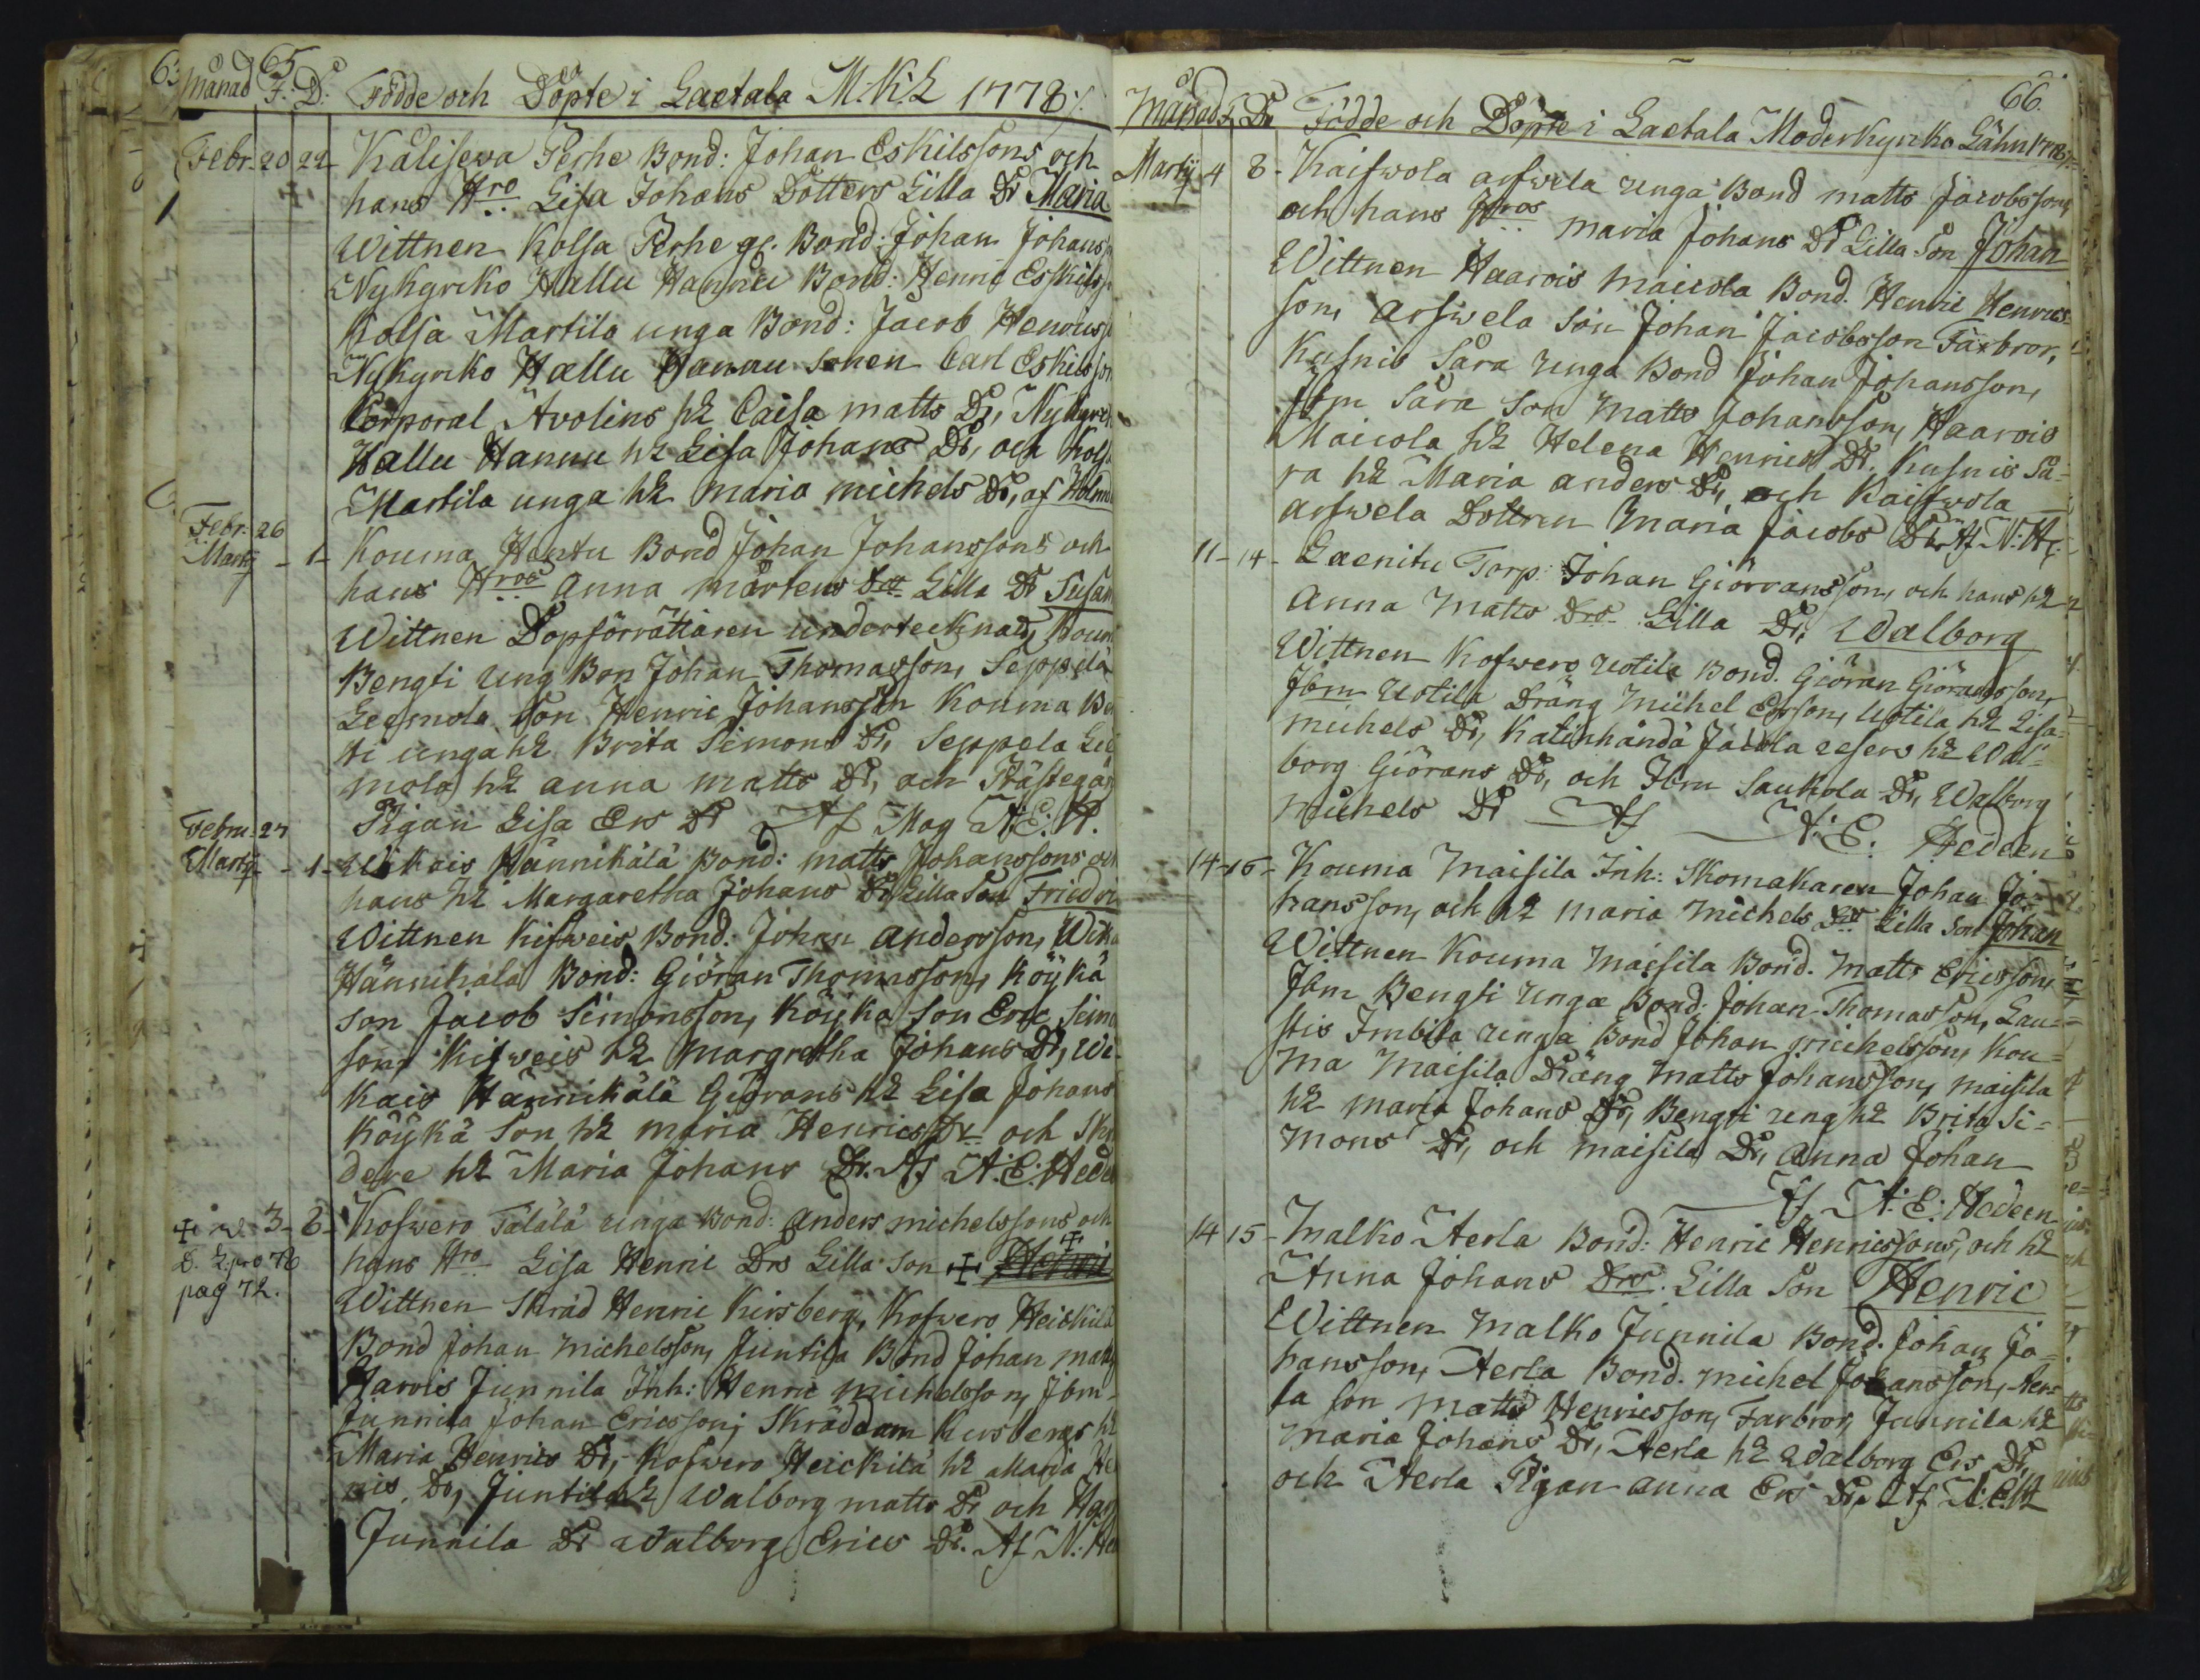 65
Månad F. D. Födde och Döpte i Laetala M.K.L 1778
Febr. 20 22 Kålisewa Perhe Bond: Johan Eskilssons och
hans Hro Lisa Johans Dotters Lilla Dr Maria
Wittnen Kolsa Perhe gl. Bond: Johan Johans
Nykyrko Hallu Hannu Bond: Henric Eskils
Kolsa Martila unga Bond: Jacob Henrics
Nykyrko Hallu Hannu sonen Carl Eskilsson
Corporal Avolins h2 Caisa matts Dr, Nykyrk
Hallu Hannu h2 Lisa Johans Dr, och Kolsa
Martila unga h2 maria michels Dr, af Holm
Febr. 26
Martij - 1 - Kouma Hentu Bond Johan Johanssons och
hans Hros Anna mårtens Dott Lilla Dr Susan
Wittnen Dopförrättaren undertecknad, Koum
Bengti Ung Bon Johan Thomasson, Seppelä
Leemola Son Henric Johansson Kouma Be
ti unga h2 Brita Simons Dr, Seppela Lee
mola h2 anna matts Dr, och Prästegår
Pigan Lisa Ers Dr Af Mag N:E:H.
Febru. 27
Martij - 1 - Wikais Hännikälä Bond: matts Johanssons och
hans h2 Margaretha Johans Dr Lilla Son Friedri
Wittnen Kifweis Bond: Johan andersson, Wika
Hännikälä Bond: Giöran Thomasson, Köykä
son Jacob Simonsson, Köykä son Eric Simo
son, Kifweis h2 margretha Johans Dr, Wi-
kais Hännikälä Giörans h2 Lisa Johans
Köykä Son h2 maria Henrics Dr och Skr
dere h2 Maria Johans Dr. Af N:E:Hede
3 - 8 - Kofwero Tälälä unga Bond: anders michelssons och
D. L. pro 78
pag 72.
hans Hro Lisa Henric Drs Lilla son Henric
Wittnen Skräd Henric Kirsberg, Kofwero Heickilä
Bond Johan michelsson, Juntila Bond Johan matts
Harvis Junnila Inh: Henric michelsson, Jbm
Junnila Johan Ericsson, Skräddarn Kirsbergs h2
Maria Henrics Dr, Kofwero Heickilä h2 Maria He
ris Dr, Juntila h2 Walborg matts Dr och Har
Junnila Dr Walborg Erics Dr. Af N: He
66.
Månad F. D. Födde och Döpte i Laetala Moderkyrko Lähn 1778
Martij 4 8 - Kaifwola arfwela unga Bond matts Jacobssons
och hans Hros maria Johans Dr Lilla Son Johan
Wittnen Haarois Maicola Bond. Henric Henrics
son, Arfwela son Johan Jacobsson Farbror,
Kusnis Sara unga Bond Johan Johansson,
Jbm Sara son Matts Johansson, Haarois
Maicola h2 Helena Henrics Dr. Kusnis Sa-
ra h2 Maria anders Dr, och Kaifwola
arfwela Dottren Maria Jacobs Dr Af N:H:
11 - 14 - Laenitu Torp: Johan Giöransson, och hans h2
Anna Matts Drs Lilla Dr, Walborg
Wittnen Kofwero Uotila Bond. Giöran Giöransson,
Jbm Uotila Dräng Michel Ersson, Uotila h2 Lisa
michels Dr, Katinhändä Jacola h2 Wal-
borg Giörans Dr, och Jbm Saukola Dr, Walborg
michels Dr Af N:E: Hedeen
14 - 15 - Kouma Maisila Inh: Skomakaren Johan Jo-
hansson, och h2 maria michels Drs Lilla Son Johan
Wittnen Kouma Maisila Bond. matts Ericsson,
Jbm Bengti Unga Bond: Johan Thomasson, Lau-
stis Imbila unga Bond Johan michelsson, Kou-
ma Maisila Dräng Matts Johansson, maisila
h2 maria Johans Dr, Bengti ung h2 Brita Si-
mons Dr, och maisila Dr, Anna Johan
Af N:E: Hedeen
14 15 - Malko Aerla Bond: Henric Henricssons, och h2
Anna Johans Drs. Lilla Son Henric
Wittnen Malko Junnila Bond. Johan Jo-
hansson, Aerla Bond. michel Johansson, Aer-
la son matts Henricsson, Farbror, Junnila h2
maria Johans Dr, Aerla h2 Walborg Ers Dr,
och Aerla Pigan anna Ers Dr, Af N:E:H